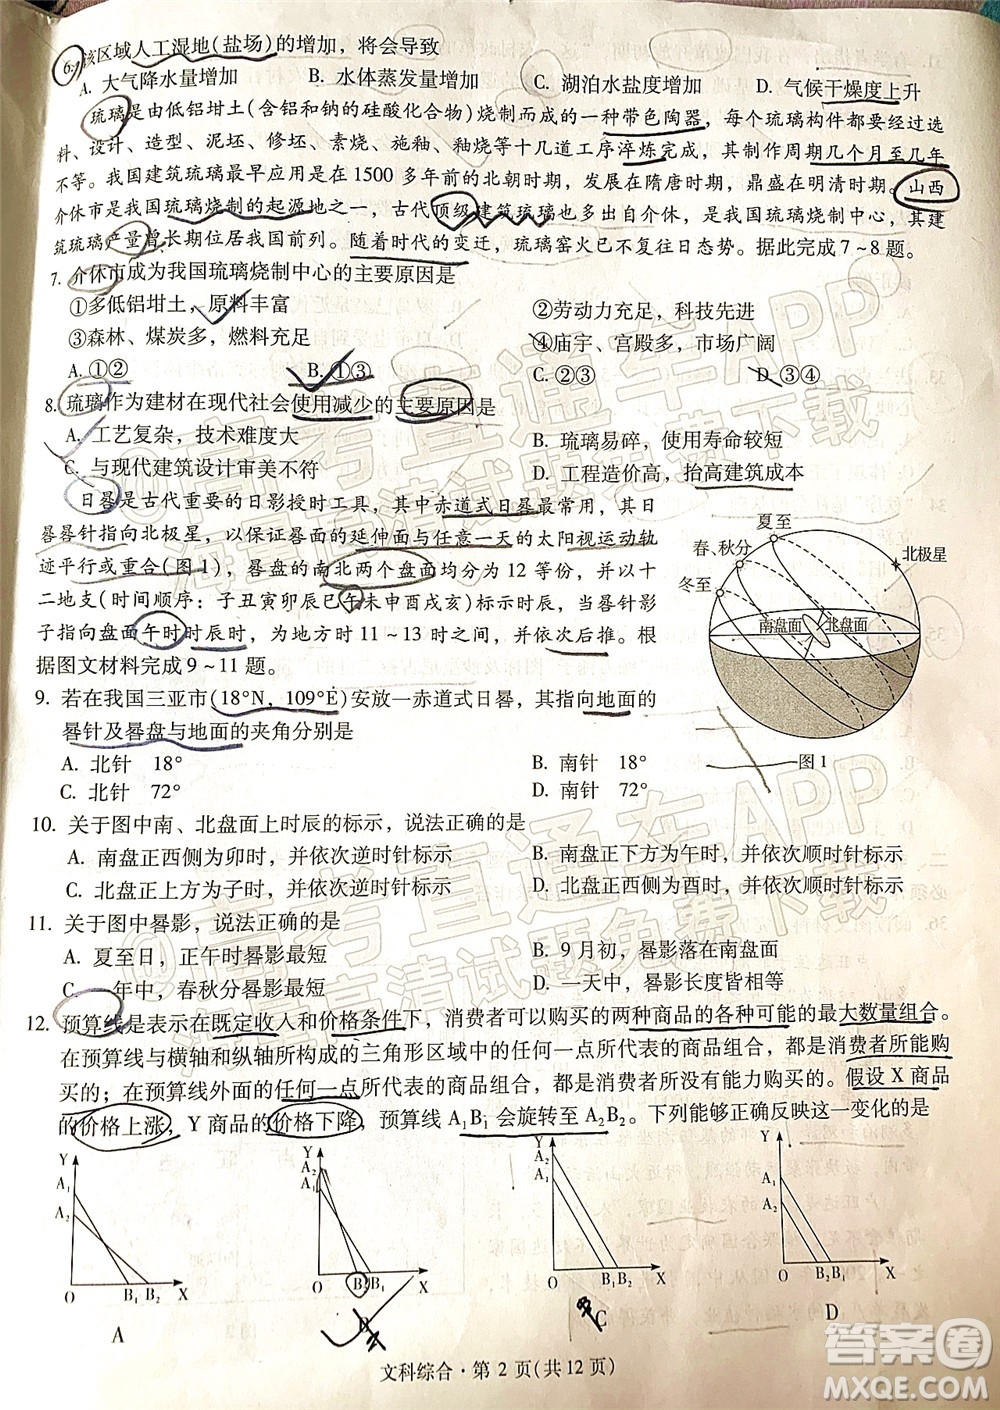 6. 该区域人工湿地(盐场)的增加，将会导致
A. 大气降水量增加 B. 水体蒸发量增加 C. 湖泊水盐度增加 D. 气候干燥度上升
琉璃是由低铝坩土(含铝和钠的硅酸化合物)烧制而成的一种带色陶器，每个琉璃构件都要经过选
料、设计、造型、泥坯、修坯、素烧、施釉、釉烧等十几道工序淬炼完成，其制作周期几个月至几年
不等。我国建筑琉璃最早应用在1500多年前的北朝时期，发展在隋唐时期，鼎盛在明清时期。山西
介休市是我国琉璃烧制的起源地之一，古代顶级建筑琉璃也多出自介休，是我国琉璃烧制中心，其建
筑琉璃产量曾长期位居我国前列。随着时代的变迁，琉璃窑火已不复往日态势。据此完成7~8题。
7. 介休市成为我国琉璃烧制中心的主要原因是
①多低铝坩土，原料丰富 ②劳动力充足，科技先进
③森林、煤炭多，燃料充足 ④庙宇、宫殿多，市场广阔
A. ①② B. ①③ C. ②④ D. ③④
8. 琉璃作为建材在现代社会使用减少的主要原因是
A. 工艺复杂，技术难度大 B. 琉璃易碎，使用寿命较短
C. 与现代建筑设计审美不符 D. 工程造价高，抬高建筑成本
日晷是古代重要的日影授时工具，其中赤道式日晷最常用，其
晷针指向北极星，以保证晷面的延伸面与任意一天的太阳视运动轨
迹平行或重合(图1)，晷盘的南北两个盘面均分为12等份，并以十
二地支(时间顺序：子丑寅卯辰巳午未申酉戌亥)标示时辰，当晷针
影子指向盘面午时时辰时，为地方时11~13时之间，并依次后推。根
据图文材料完成9~11题。
夏至
春、秋分
冬至
北极星
南盘面 北盘面
图1
9. 若在我国三亚市(18°N，109°E)安放一赤道式日晷，其指向地面的
晷针及晷盘与地面的夹角分别是
A. 北针 18° B. 南针 18°
C. 北针 72° D. 南针 72°
10. 关于图中南、北盘面上时辰的标示，说法正确的是
A. 南盘正西侧为卯时，并依次逆时针标示 B. 南盘正下方为午时，并依次顺时针标示
C. 北盘正上方为子时，并依次顺时针标示 D. 北盘正西侧为酉时，并依次顺时针标示
11. 关于图中晷影，说法正确的是
A. 夏至日，正午时晷影最短 B. 9月初，晷影落在南盘面
C. 一年中，春秋分晷影最短 D. 一天中，晷影长度皆相等
12. 预算线是表示在既定收入和价格条件下，消费者可以购买的两种商品的各种可能的最大数量组合。
在预算线与横轴和纵轴所构成的三角形区域中的任何一点所代表的商品组合，都是消费者所能购
买的；在预算线外面的任何一点所代表的商品组合，都是消费者没有能力购买的。假设X商品
的价格上涨，Y商品的价格下降，预算线A₁B₁会旋转至A₂B₂。下列能够反映这一变化的是
Y A₁ A₂ O B₁ B₂ X
A
Y A₂ A₁ O B₂ B₁ X
B
Y A₂ A₁ O B₁ B₂ X
C
Y A₁ A₂ O B₂ B₁ X
D
文科综合·第2页(共12页)
@高考直通车APP
海量高清试题免费下载
@高考直通车APP
海量高清试题免费下载
答案圈
MXQE.COM